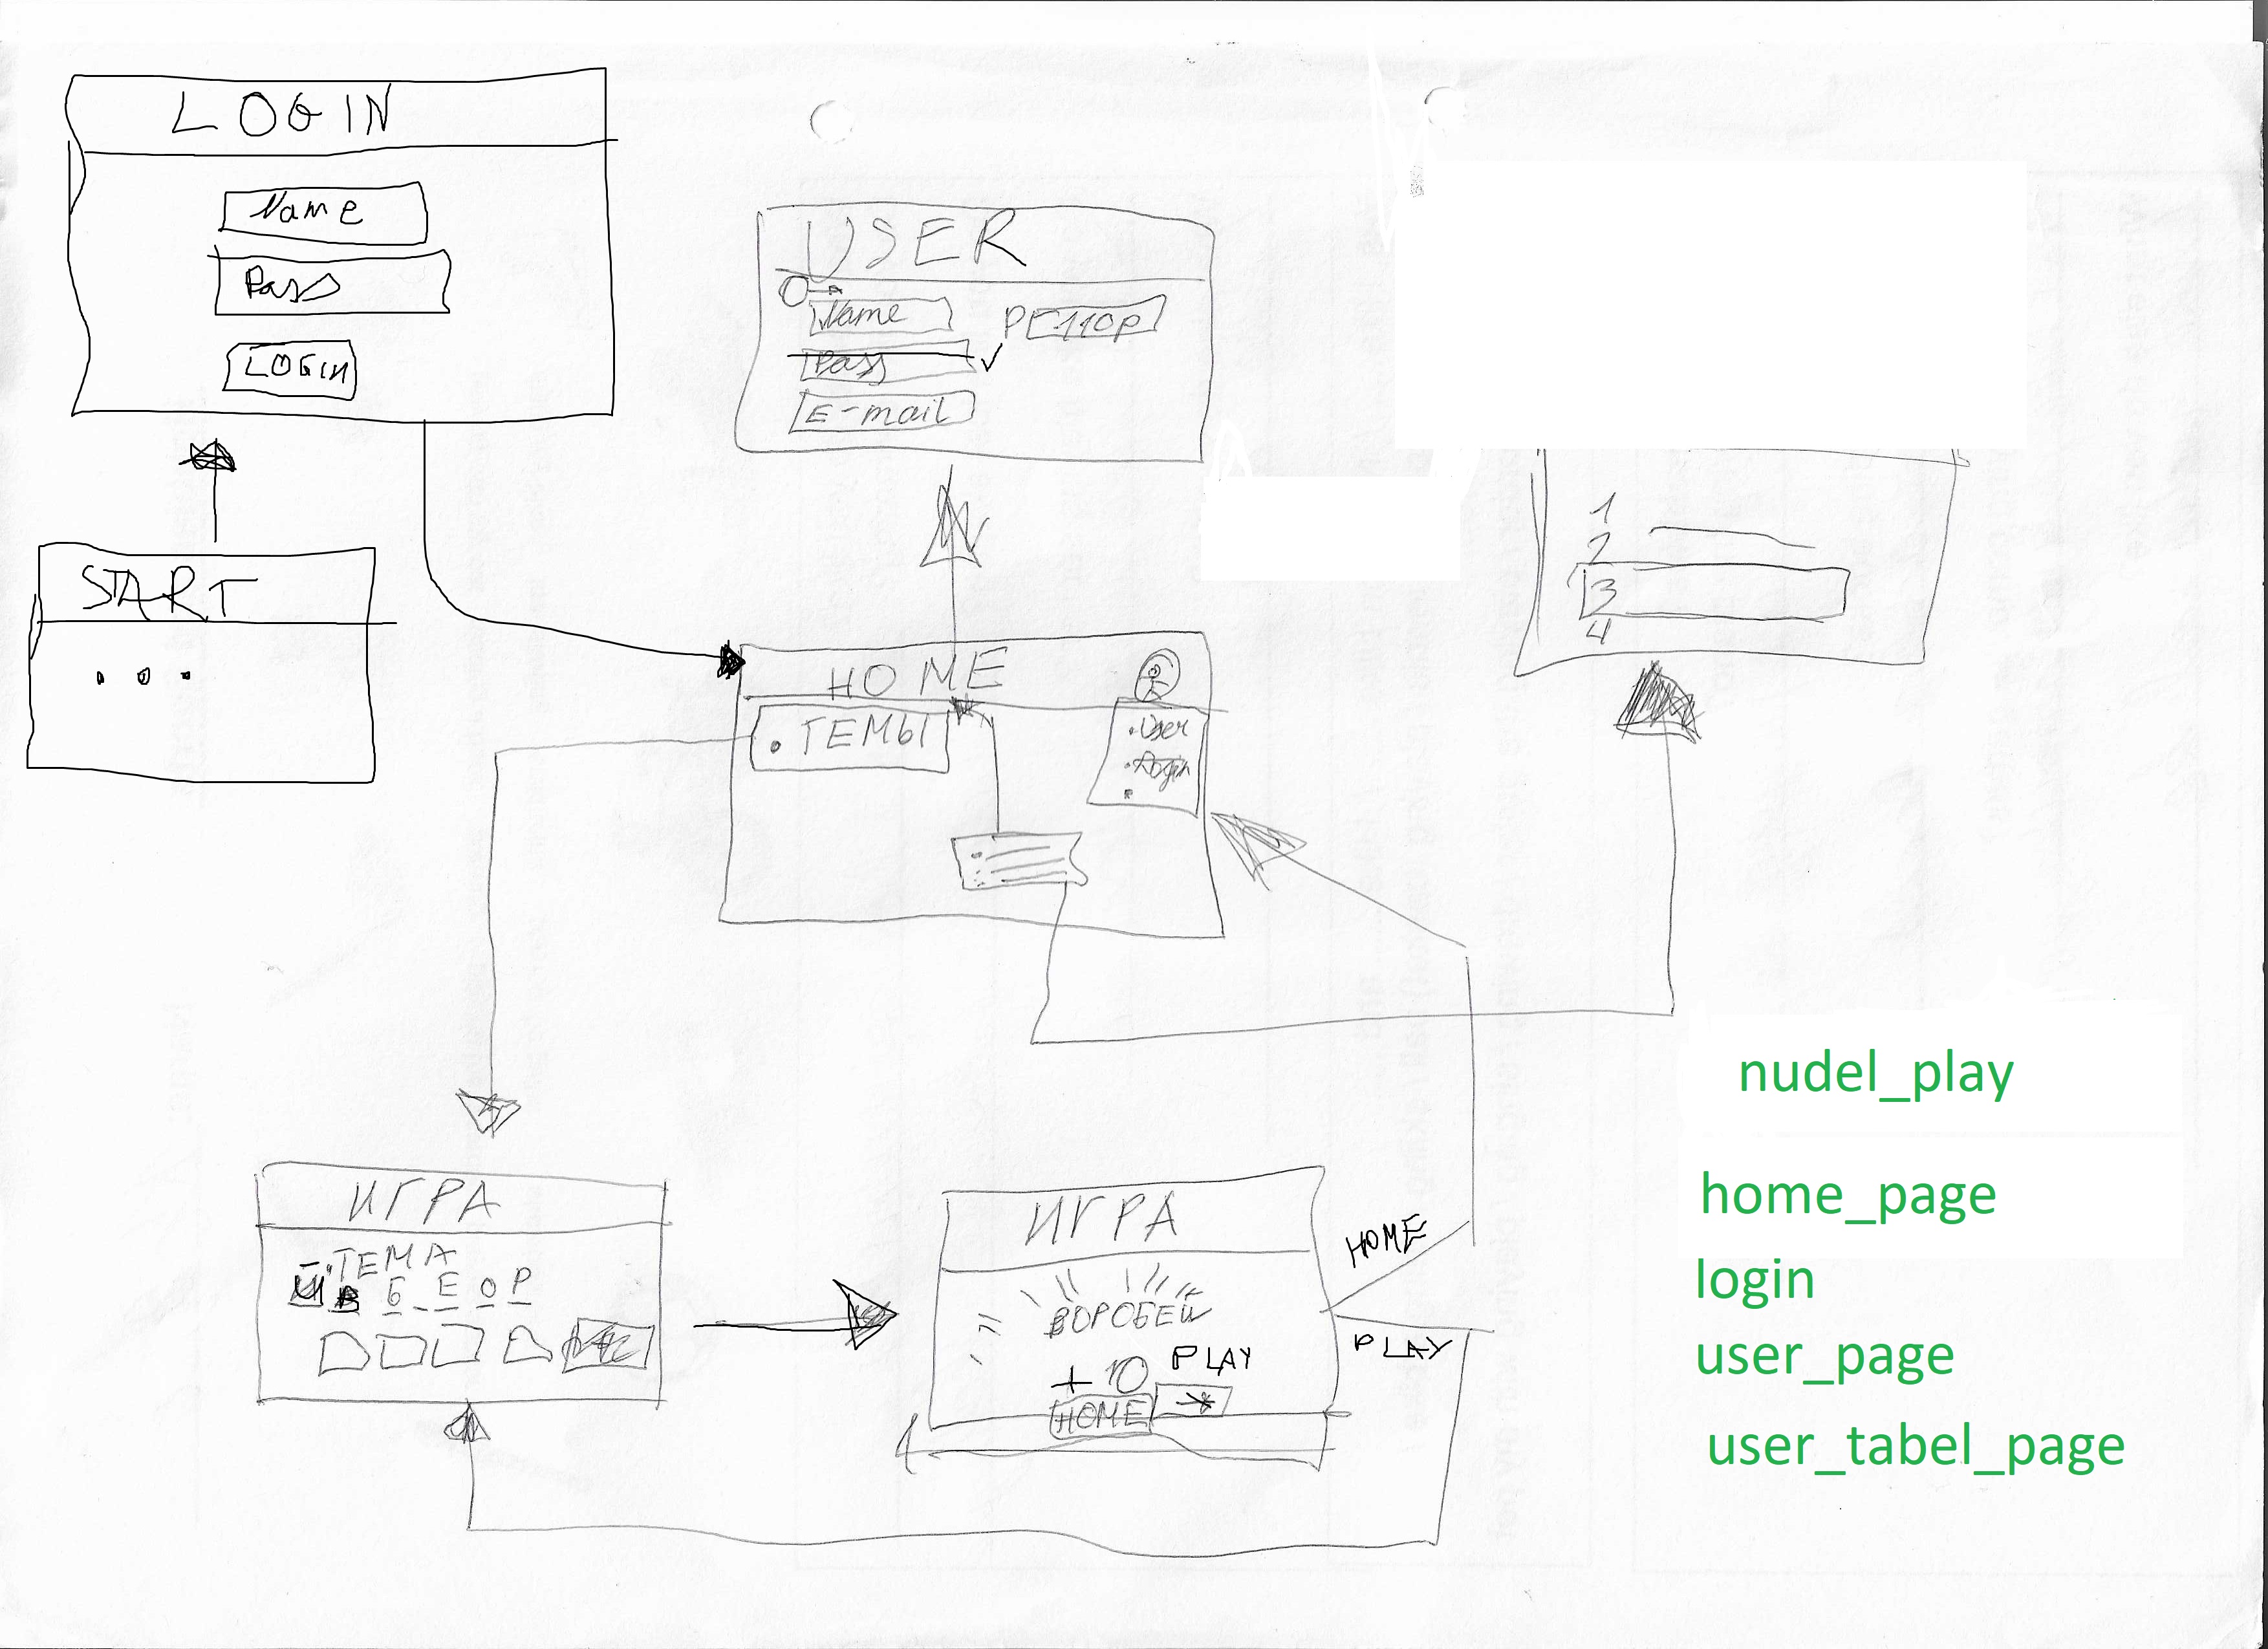 LOGIN
Name
Pass
LOGIN
START
USER
Name
Pass
E-mail
1
2
3
4
HOME
ТЕМЫ
User
Login
ИГРА
ТЕМА
Й В Б Е О Р
ИГРА
ВОРОБЕЙ
+10
PLAY
HOME
HOME
PLAY
nudel_play
home_page
login
user_page
user_tabel_page